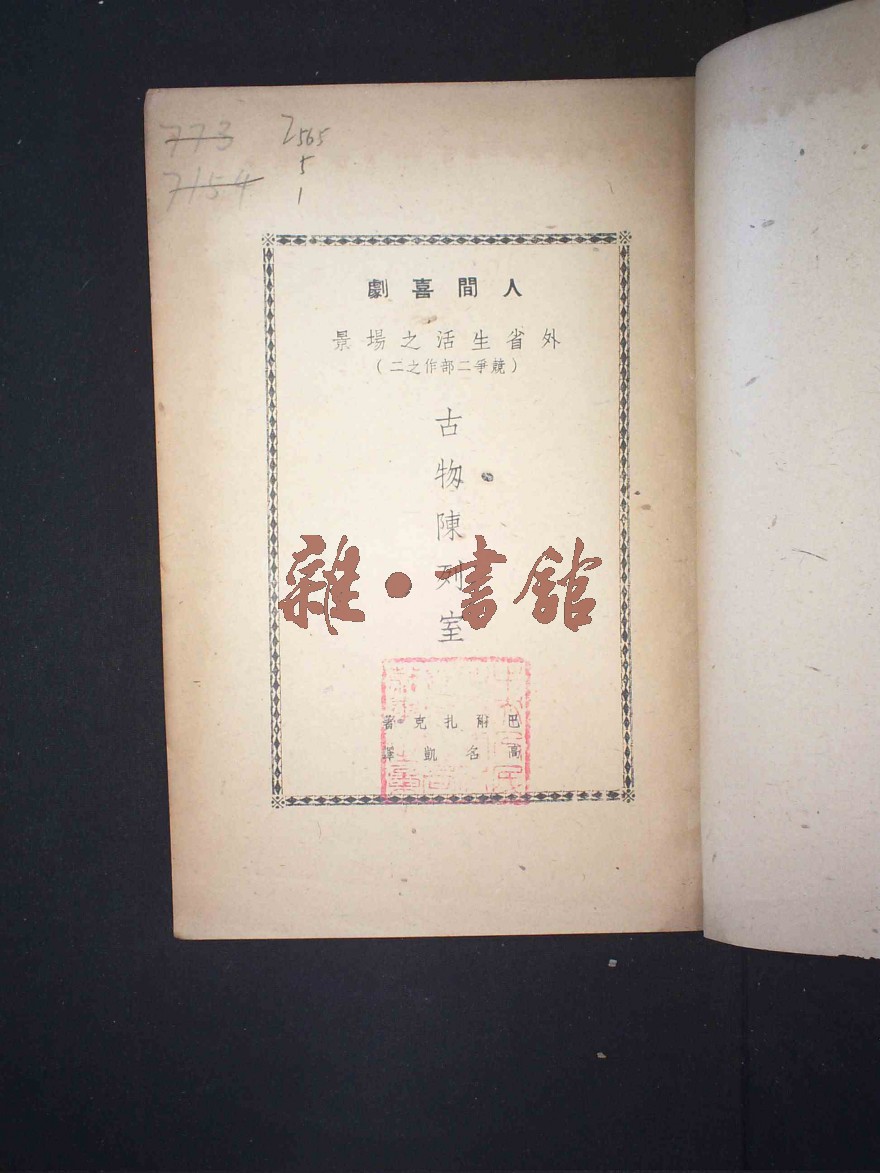 773 I565
5
7154 1
人間喜劇
外省生活之場景
（競爭二部作之二）
古物陳列室
雜•書館
巴爾扎克著
高名凱譯